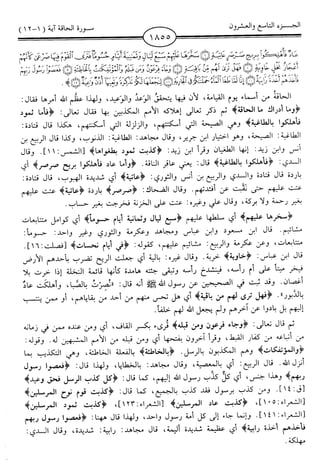 الجزء التاسع والعشرون
١٨٥٥
سورة الحاقة آية (١-١٢)
الحاقة من أسماء يوم القيامة، لأن فيها يتحقق الوعد والوعيد، ولهذا عظم الله أمرها فقال:
﴿وما أدراك ما الحاقة﴾ ثم ذكر تعالى إهلاكه الأمم المكذبين بها فقال تعالى: ﴿فأما ثمود
فأهلكوا بالطاغية﴾ وهي الصيحة التي أسكتتهم، والزلزلة التي أسكنتهم، هكذا قال قتادة:
الطاغية: الصيحة، وهو اختيار ابن جرير، وقال مجاهد: الطاغية: الذنوب، وكذا قال الربيع بن
أنس وابن زيد: إنها الطغيان وقرأ ابن زيد: ﴿كذبت ثمود بطغواها﴾ [الشمس: ١١]. وقال
السدي: ﴿فأهلكوا بالطاغية﴾ قال: يعني عاقر الناقة. ﴿وأما عاد فأهلكوا بريح صرصر﴾ أي
باردة قال قتادة والسدي والربيع بن أنس والثوري: ﴿عاتية﴾ أي شديدة الهبوب، قال قتادة:
عتت عليهم حتى نقبت عن أفئدتهم. وقال الضحاك: ﴿صرصر﴾ باردة ﴿عاتية﴾ عتت عليهم
بغير رحمة ولا بركة، وقال علي وغيره: عتت على الخزنة فخرجت بغير حساب.
﴿سخرها عليهم﴾ أي سلطها عليهم ﴿سبع ليال وثمانية أيام حسوماً﴾ أي كوامل متتابعات
مشائيم. قال ابن مسعود وابن عباس ومجاهد وعكرمة والثوري وغير واحد: حسوماً:
متتابعات، وعن عكرمة والربيع: مشائيم عليهم، كقوله: ﴿في أيام نحسات﴾ [فصلت: ١٦].
قال ابن عباس: ﴿خاوية﴾ خربة. وقال غيره: بالية أي جعلت الريح تضرب بأحدهم الأرض
فيخر ميتاً على أم رأسه، فينشدخ رأسه وتبقى جثته هامدة كأنها قائمة النخلة إذا خرت بلا
أغصان. وقد ثبت في الصحيحين عن رسول الله ﷺ أنه قال: «نُصِرْتُ بالصَّبا، وأهلكت عادٌ
بالدبور». ﴿فهل ترى لهم من باقية﴾ أي هل تحس منهم من أحد من بقاياهم، أو ممن ينتسب
إليهم بل بادوا عن آخرهم ولم يجعل الله لهم خلفاً.
ثم قال تعالى: ﴿وجاء فرعون ومن قبله﴾ قرىء بكسر القاف، أي ومن عنده ممن في زمانه
من أتباعه من كفار القبط، وقرأ آخرون بفتحها أي ومن قبله من الأمم المشبهين له. وقوله:
﴿والمؤتفكات﴾ وهم المكذبون بالرسل. ﴿بالخاطئة﴾ بالفعلة الخاطئة، وهي التكذيب بما
أنزل الله. قال الربيع: أي بالمعصية، وقال مجاهد: بالخطايا، ولهذا قال: ﴿فعصوا رسول
ربهم﴾ وهذا جنس، أي كلٌّ كذَّب رسول الله إليهم، كما قال: ﴿كل كذب الرسل فحق وعيد﴾
[ق: ١٤]. ومن كذب برسول فقد كذب بالجميع، كما قال: ﴿كذبت قوم نوح المرسلين﴾
[الشعراء: ١٠٥]، ﴿كذبت عاد المرسلين﴾ [الشعراء: ١٢٣]، ﴿كذبت ثمود المرسلين﴾
[الشعراء: ١٤١]. وإنما جاء إلى كل أمة رسول واحد، ولهذا قال ههنا: ﴿فعصوا رسول ربهم
فأخذهم أخذة رابية﴾ أي عظيمة شديدة أليمة، قال مجاهد: رابية: شديدة، وقال السدي:
مهلكة.